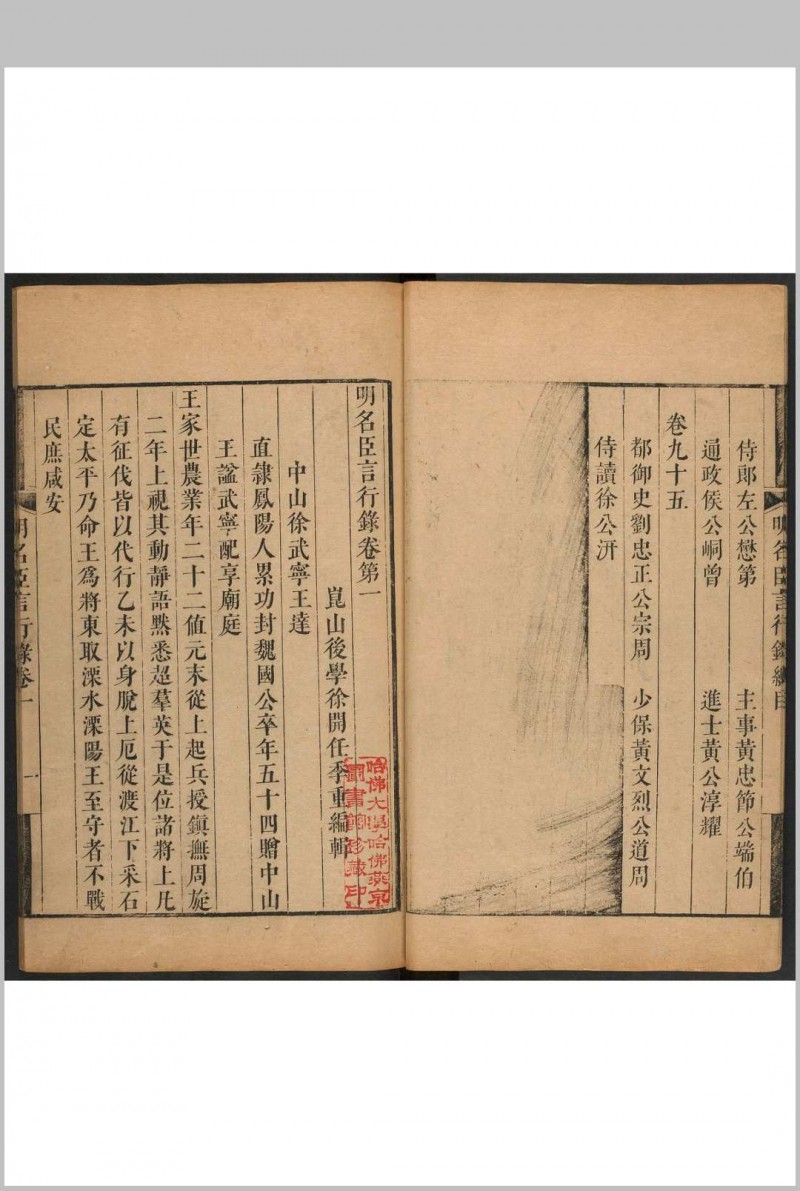 明名臣言行錄總目
侍郎左公懋第　主事黃忠節公端伯
通政侯公峒曾　進士黃公淳耀
卷九十五
都御史劉忠正公宗周　少保黃文烈公道周
侍讀徐公汧
明名臣言行錄卷第一
崑山後學徐開任季重編輯
哈佛大學哈佛燕京
圖書館珍藏印
中山徐武寧王達
直隸鳳陽人累功封魏國公卒年五十四贈中山
王諡武寧配享廟庭
王家世農業年二十二值元末從上起兵授鎮撫周旋
二年上視其動靜語默悉超羣英于是位諸將上凡
有征伐皆以代行乙未以身脫上厄從渡江下采石
定太平乃命王爲將東取溧水溧陽王至守者不戰
民庶咸安
明名臣言行錄卷一
一